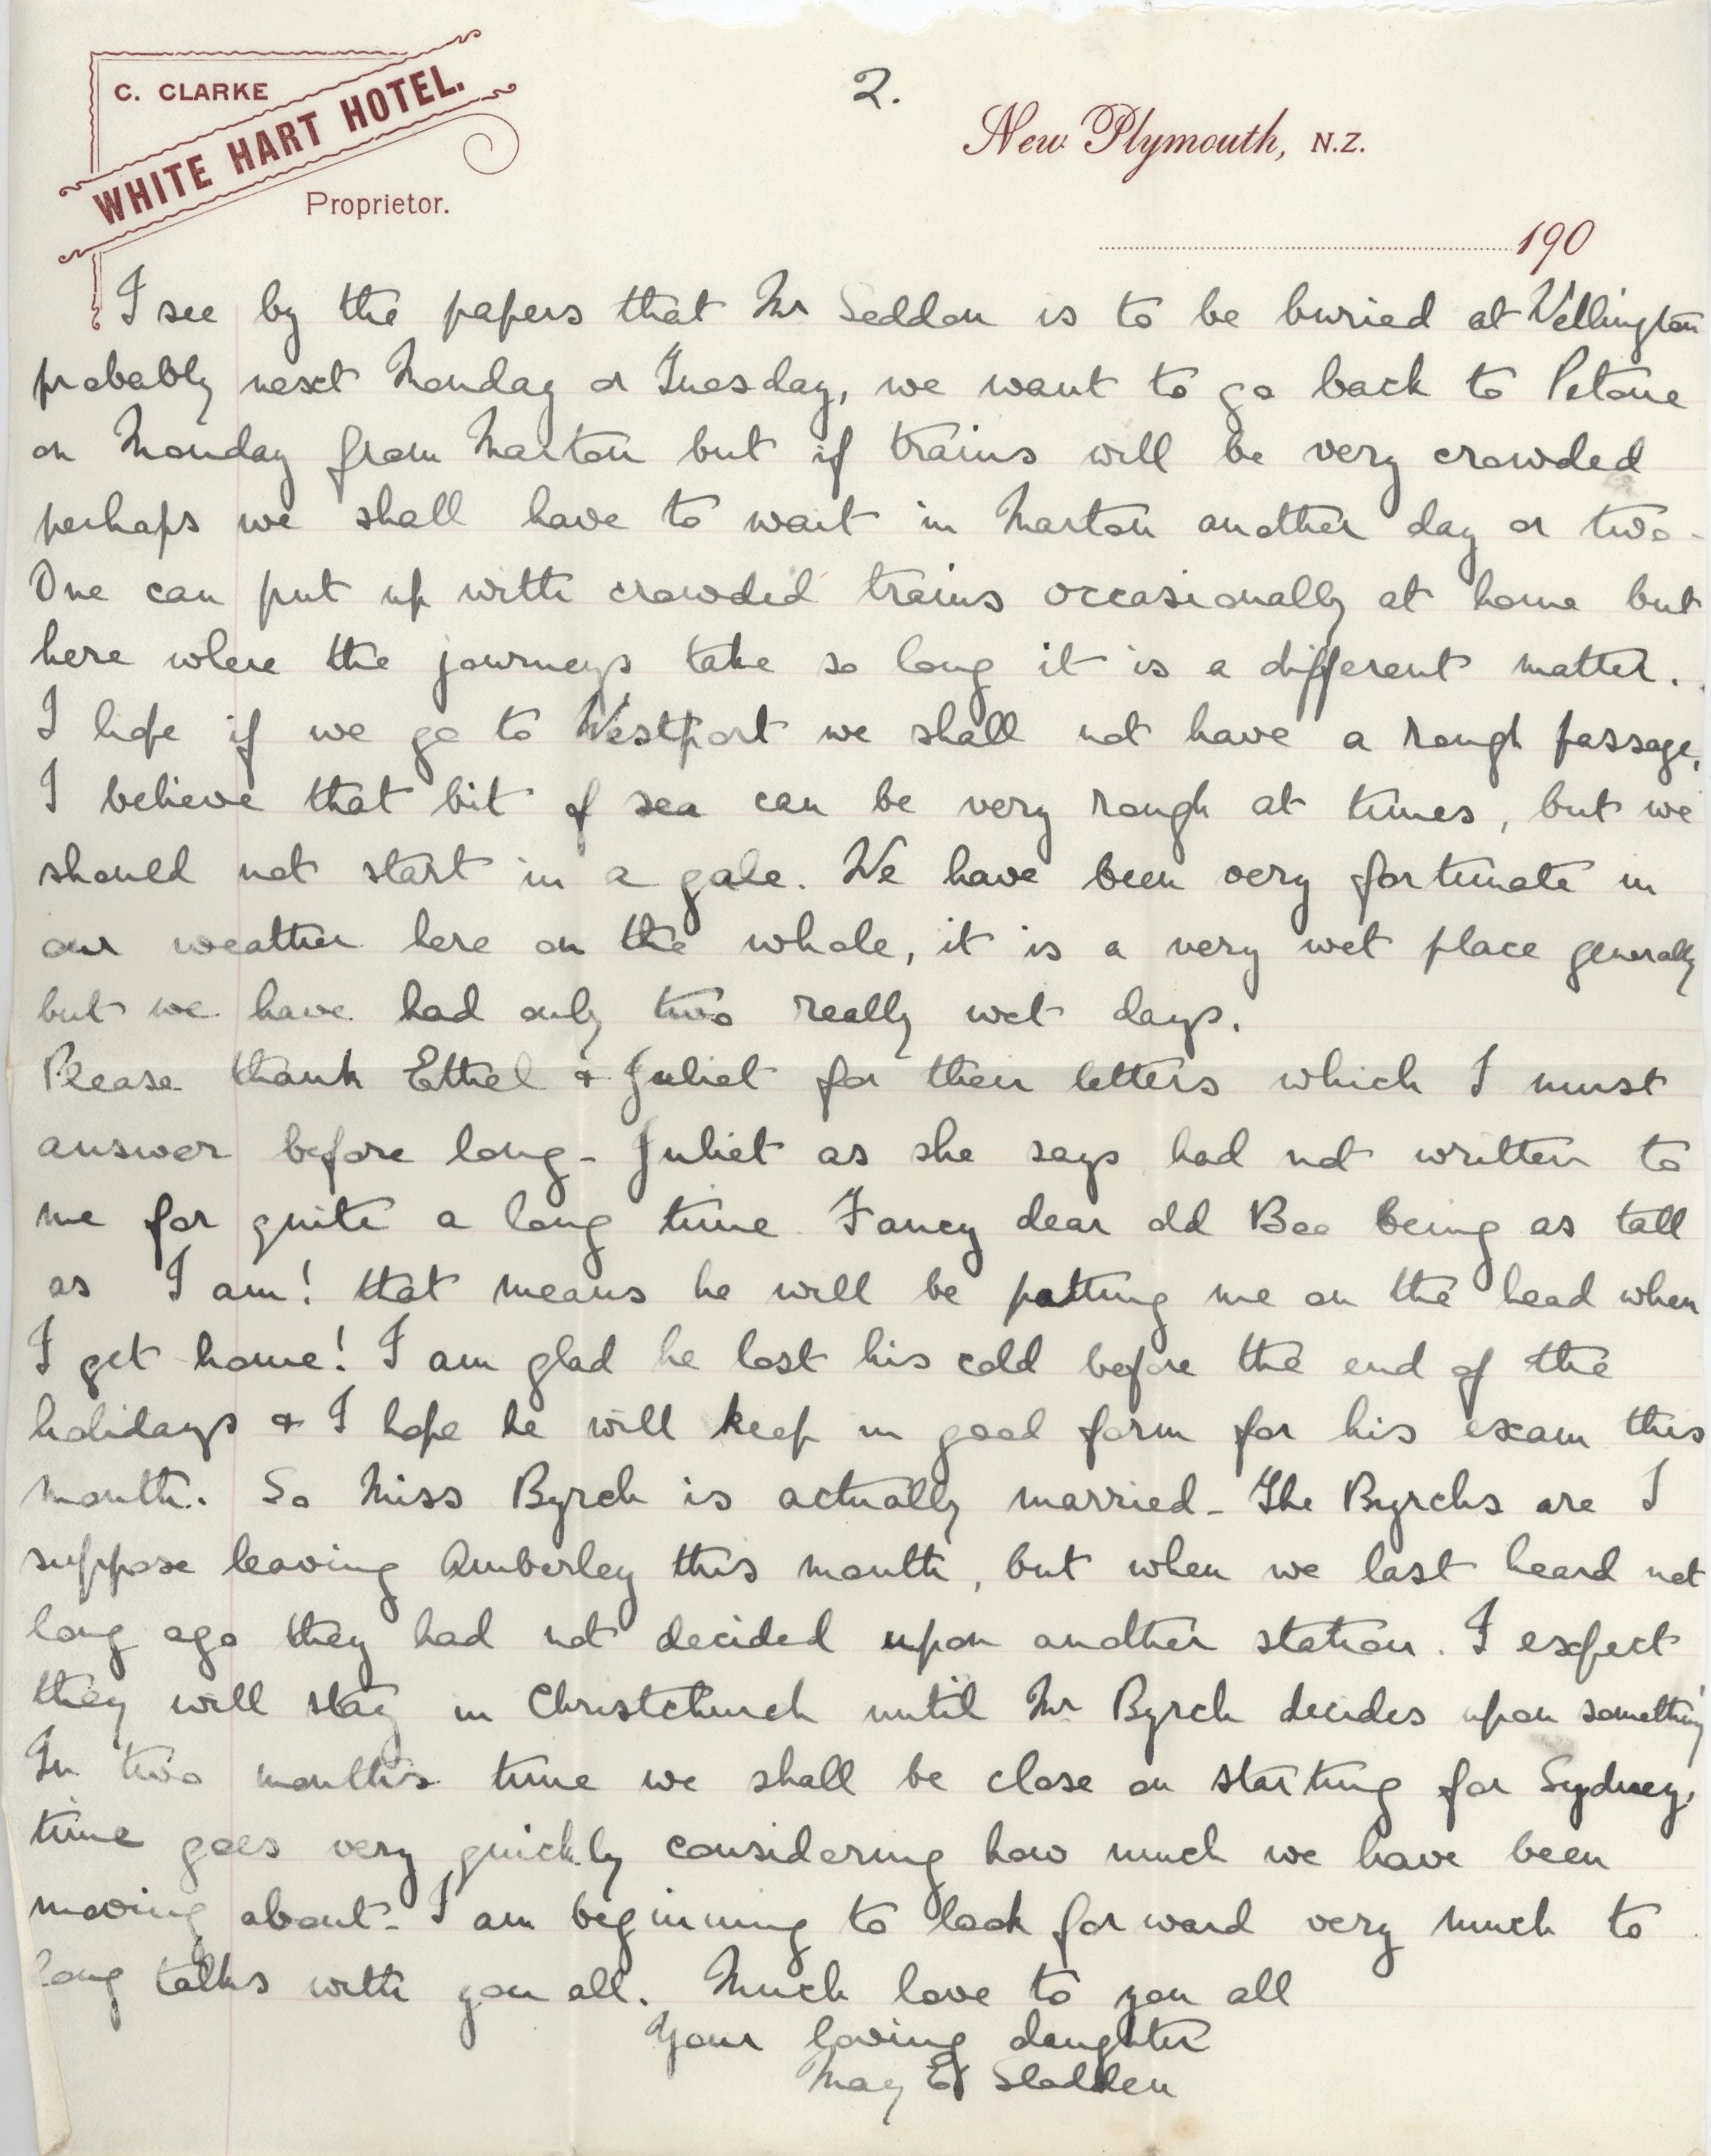 C. CLARKE
WHITE HART HOTEL.
Proprietor.
2.
New Plymouth, N.Z.
190
I see by the papers that Mr Seddon is to be buried at Wellington
probably next Monday or Tuesday, we want to go back to Petone
on Monday from Marton but if trains will be very crowded
perhaps we shall have to wait in Marton another day or two -
One can put up with crowded trains occasionally at home but
here where the journeys take so long it is a different matter.
I hope if we go to Westport we shall not have a rough passage,
I believe that bit of sea can be very rough at times, but we
should not start in a gale. We have been very fortunate in
our weather here on the whole, it is a very wet place generally
but we have had only two really wet days.
Please thank Ethel & Juliet for their letters which I must
answer before long - Juliet as she says had not written to
me for quite a long time. Fancy dear old Boo being as tall
as I am! that means he will be patting me on the head when
I get home! I am glad he lost his cold before the end of the
holidays & I hope he will keep in good form for his exam this
month. So Miss Byrch is actually married - The Byrchs are I
suppose leaving Amberley this month, but when we last heard not
long ago they had not decided upon another station. I expect
they will stay in Christchurch until Mr Byrch decides upon something
In two months time we shall be close on starting for Sydney,
time goes very quickly considering how much we have been
moving about - I am beginning to look forward very much to
long talks with you all. Much love to you all
Your loving daughter
May E Sladden